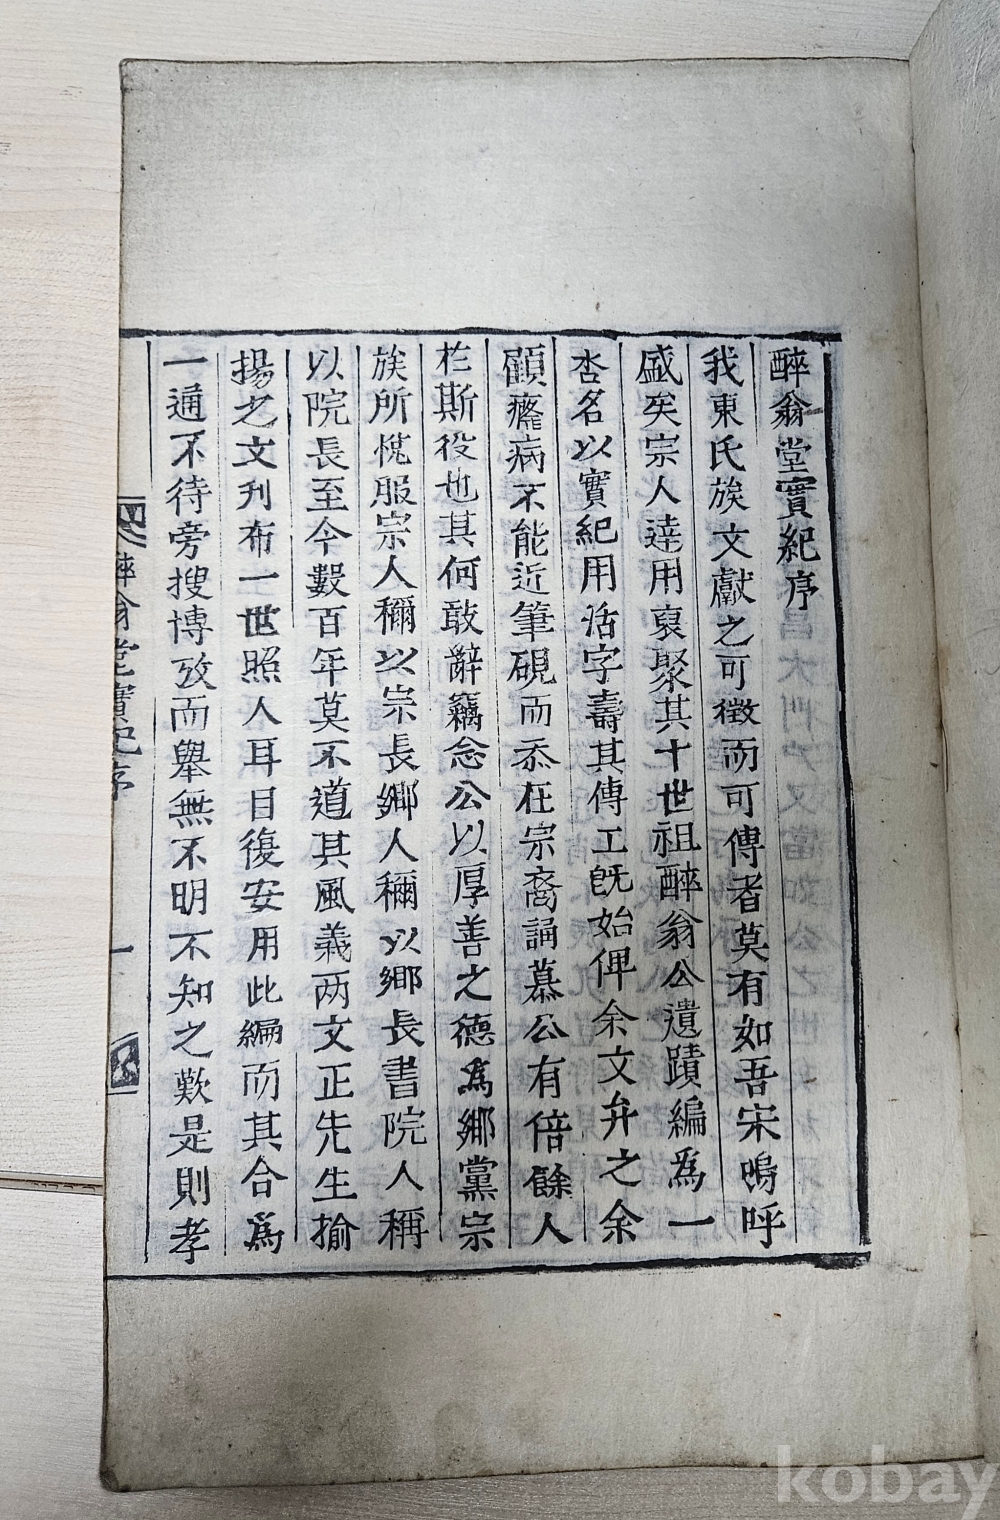 醉翁堂實紀序
我東氏族文獻之可徵而可傳者莫有如吾宋嗚呼
盛矣宗人達用裒聚其十世祖醉翁公遺蹟編爲一
呇名以實紀用活字壽其傳工旣始俾余文弁之余
顧癃病不能近筆硯而忝在宗裔誦慕公有倍餘人
於斯役也其何敢辭竊念公以厚善之德爲鄉黨宗
族所悅服宗人稱以宗長鄉人稱以鄉長書院人稱
以院長至今數百年莫不道其風義两文正先生揄
揚之文刋布一世照人耳目復安用此編而其合爲
一通不待旁搜博攷而舉無不明不知之歎是則孝
醉翁堂實紀序
一
kobay